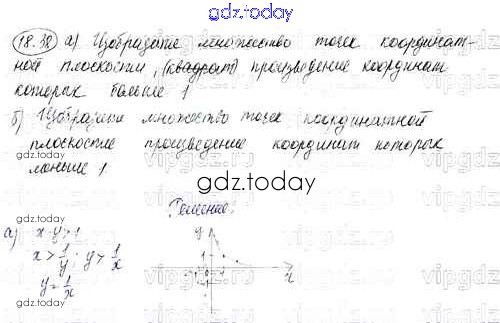 gdz.today
18.38 а) Изобразите множество точек координат-
ной плоскости, (квадрат) произведение координат
которых больше 1
б) Изобразите множество точек координатной
плоскостие произведение координат которых
меньше 1
gdz.today
Решение:
а) x·y>1
x>1/y; y>1/x
y=1/x
y
x
gdz.today
gdz.today
vipgdz.ru